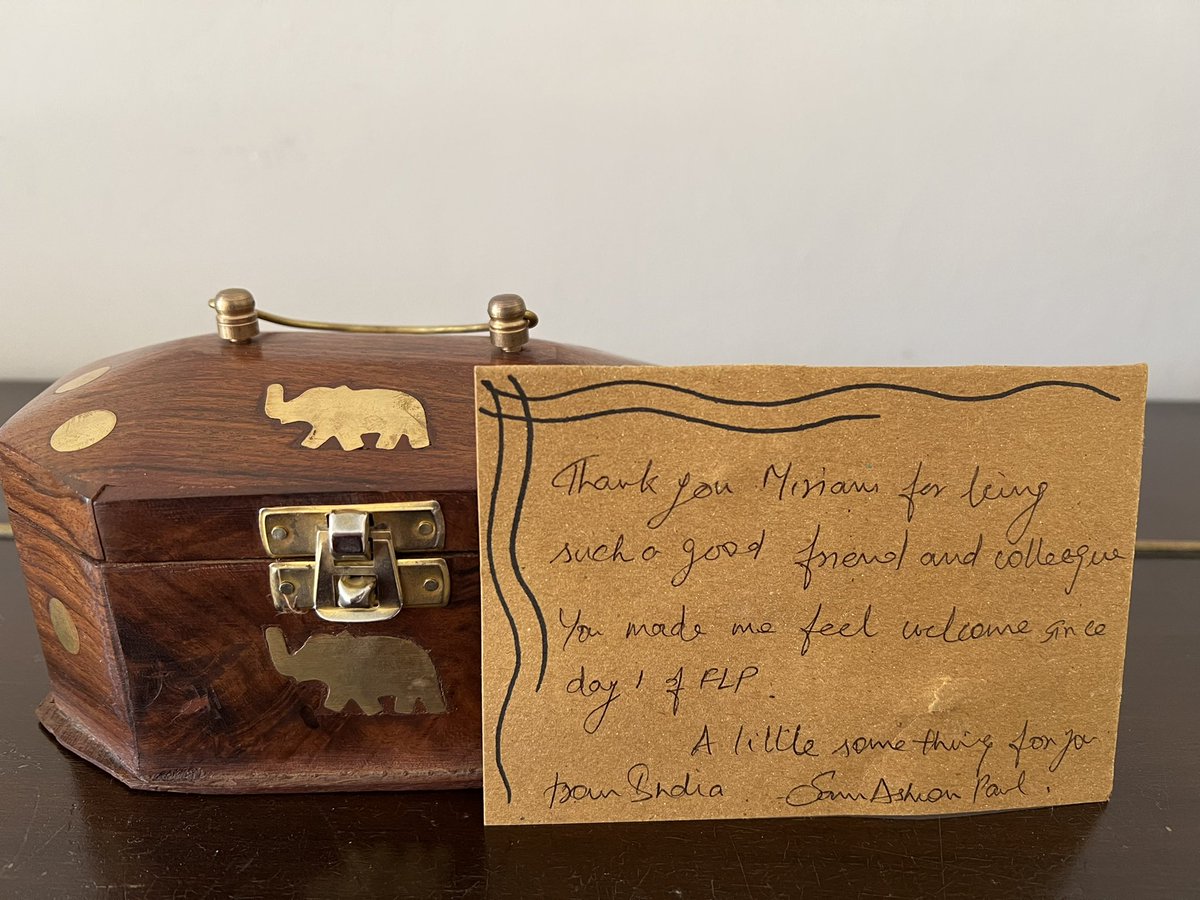 Thank you Miriam for being
such a good friend and colleague
You made me feel welcome since
day 1 of FLP.
A little something for you
from India. - Sam Ashwon Paul.